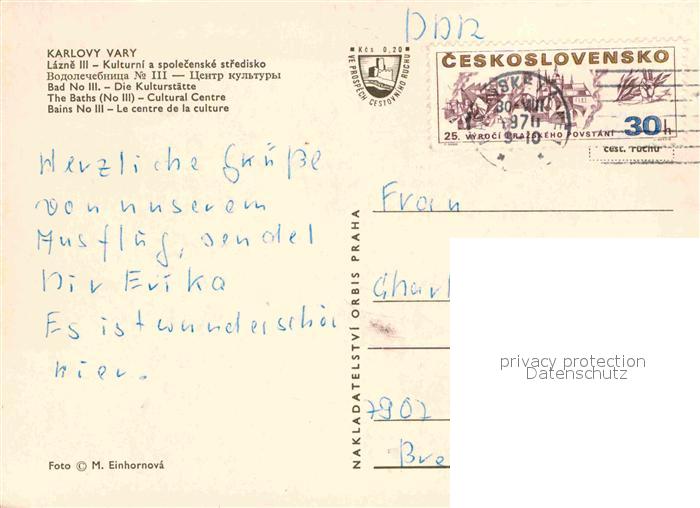 DDR
KARLOVY VARY
Lázně III – Kulturní a společenské středisko
Водолечебница № III — Центр культуры
Bad No III. – Die Kulturstätte
The Baths (No III) – Cultural Centre
Bains No III – Le centre de la culture
Kčs 0,20
VE PROSPĚCH CESTOVNÍHO RUCHU
ČESKOSLOVENSKO
25. VÝROČÍ PRAŽSKÉHO POVSTÁNÍ 30h
čest. ruchu
Herzliche Grüße
von unserem
Ausflug, sendet
Dir Erika
Es ist wunderschön
hier.
Frau
Charl
7902
Bre
NAKLADATELSTVÍ ORBIS PRAHA
privacy protection
Datenschutz
Foto © M. Einhornová